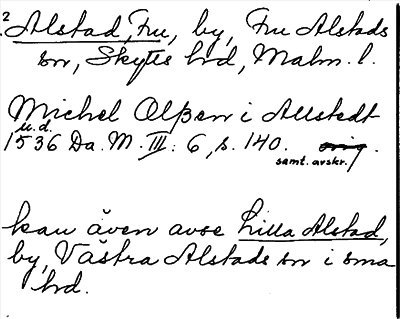 2 Alstad, Fru, by, Fru Alstads
sn, Skytts hd, Malm. l.
Michel Olßen i Allstedt
u.d.
1536 Da. M. III: 6, s. 140. orig.
samt. avskr.
kan även avse Lilla Alstad,
by, Västra Alstads sn i sma
hd.